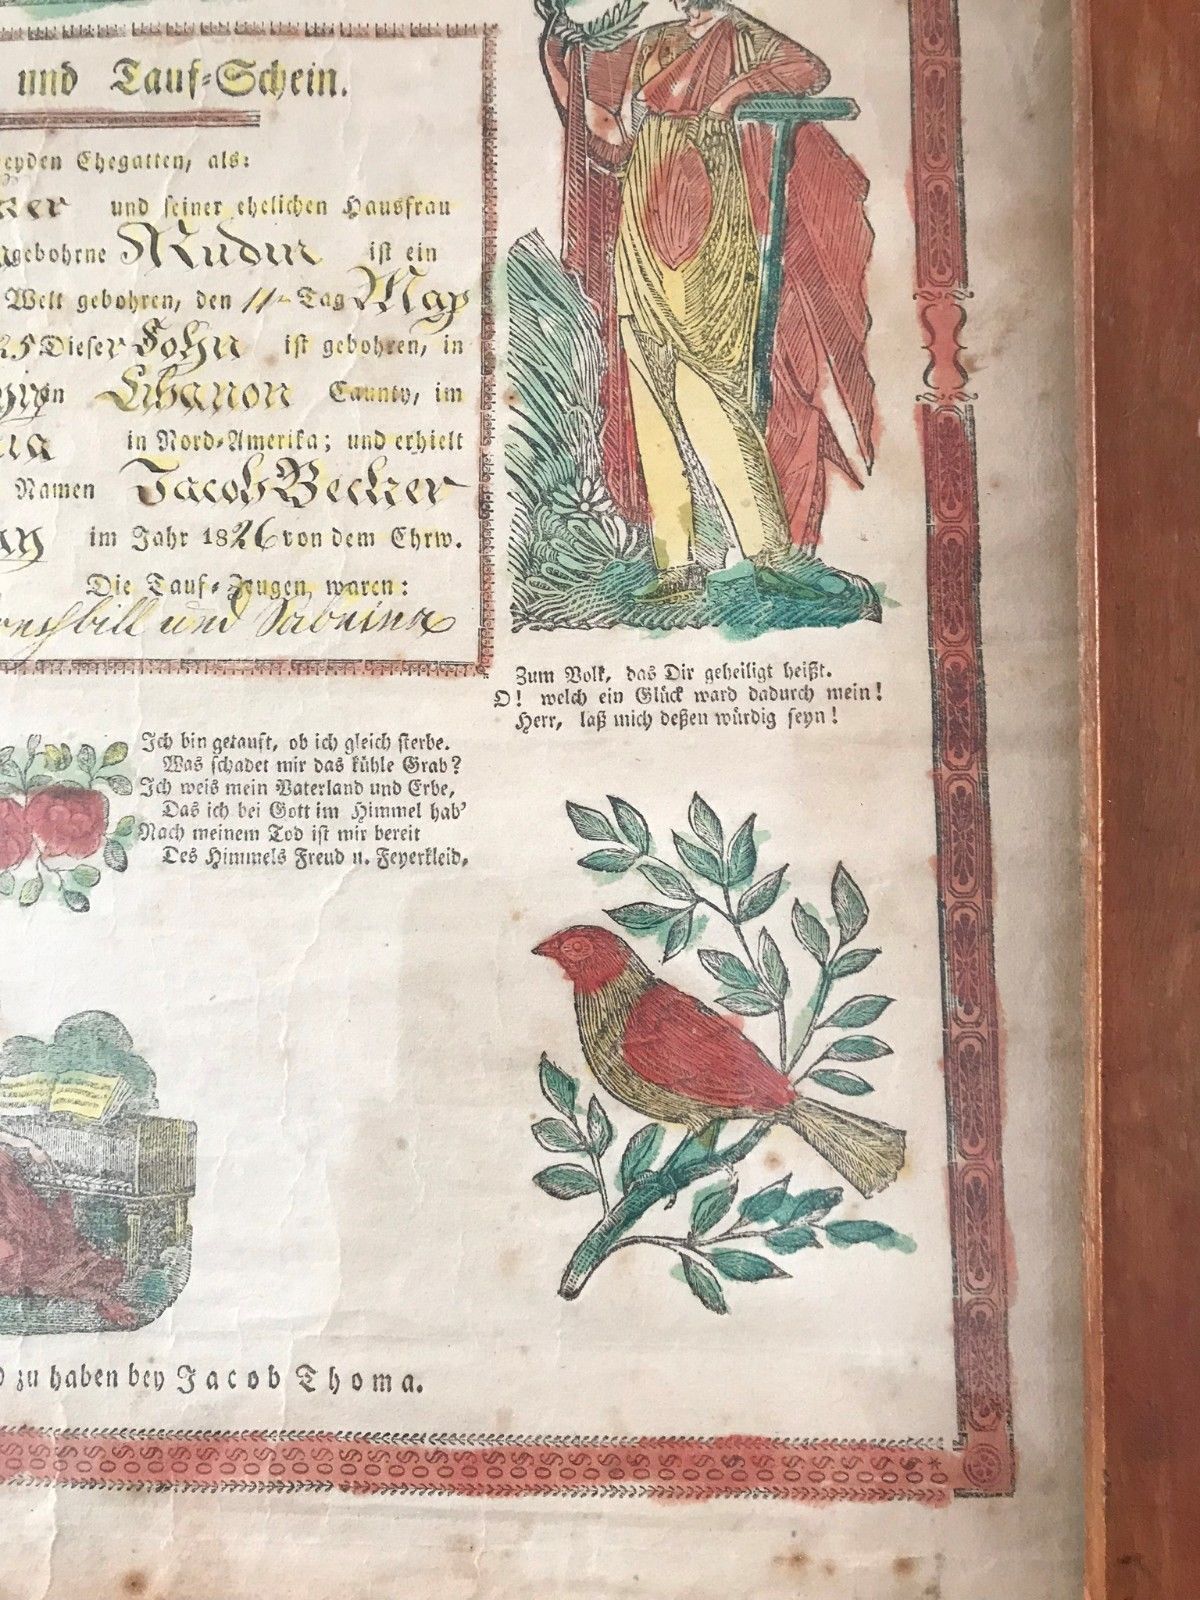 und Tauf-Schein.
eyden Ehegatten, als:
ker und seiner ehelichen Hausfrau
gebohrne ist ein
Welt gebohren, den 11 Tag May
25 Dieser Sohn ist gebohren, in
in Libanon Caunty, im
in Nord-Amerika; und erhielt
Namen Jacob Becker
im Jahr 1826 von dem Ehrw.
Die Tauf-Zeugen, waren:
und Sabeina
Zum Volk, das Dir geheiligt heißt.
O! welch ein Glück ward dadurch mein!
Herr, laß mich deßen würdig seyn!
Ich bin getauft, ob ich gleich sterbe.
Was schadet mir das kühle Grab?
Ich weis mein Vaterland und Erbe,
Das ich bei Gott im Himmel hab'
Nach meinem Tod ist mir bereit
Des Himmels Freud u. Feyerkleid,
zu haben bey Jacob Thoma.